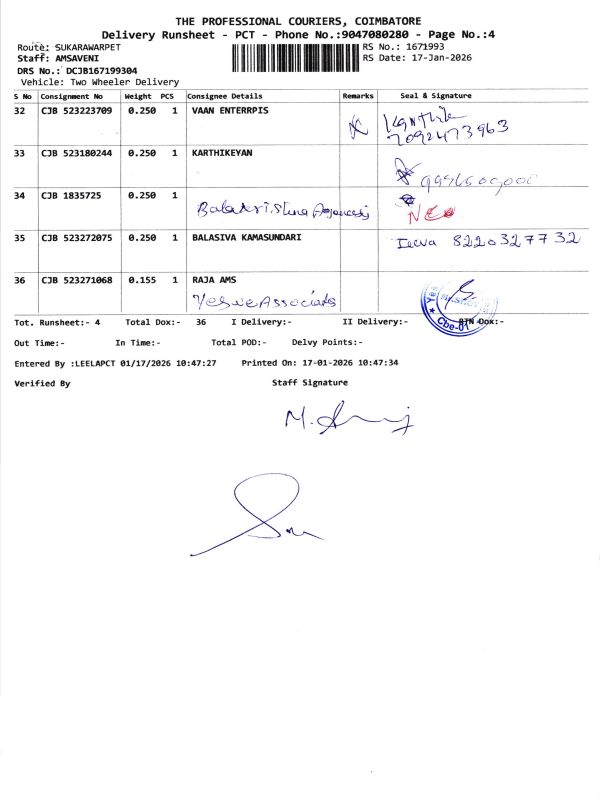 THE PROFESSIONAL COURIERS, COIMBATORE
Delivery Runsheet - PCT - Phone No.:9047080280 - Page No.:4
Route: SUKARAWARPET
RS No.: 1671993
Staff: AMSAVENI
RS Date: 17-Jan-2026
DRS No.: DCJB167199304
Vehicle: Two Wheeler Delivery
S No Consignment No Weight PCS Consignee Details Remarks Seal & Signature
32 CJB 523223709 0.250 1 VAAN ENTERRPIS
7092473963
33 CJB 523180244 0.250 1 KARTHIKEYAN
34 CJB 1835725 0.250 1
NEO
35 CJB 523272075 0.250 1 BALASIVA KAMASUNDARI 8220327732
36 CJB 523271068 0.155 1 RAJA AMS
Yeswe Associats
Cbe-01
Tot. Runsheet:- 4 Total Dox:- 36 I Delivery:- II Delivery:- RTN Dox:-
Out Time:- In Time:- Total POD:- Delvy Points:-
Entered By :LEELAPCT 01/17/2026 10:47:27 Printed On: 17-01-2026 10:47:34
Verified By Staff Signature